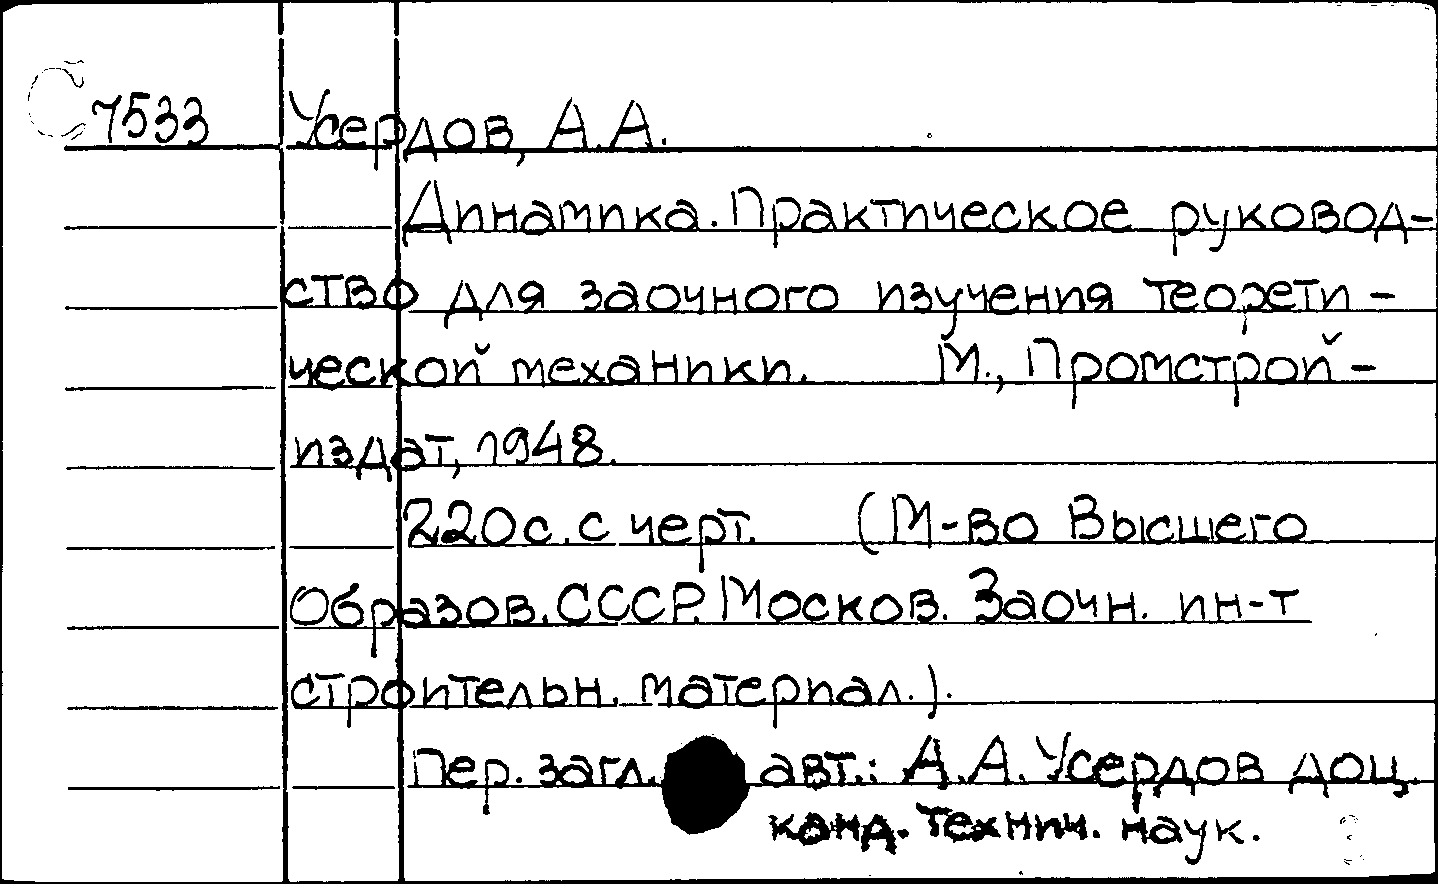 С 7533 Усердов, А.А.
Динамика. Практическое руковод-
ство для заочного изучения теорети-
ческой механики. М., Промстрой-
издат, 1948.
220с. с черт. (М-во Высшего
Образов. СССР. Москов. Заочн. ин-т
строительн. материал.).
Пер. загл. авт.: А.А. Усердов доц.
канд. технич. наук.